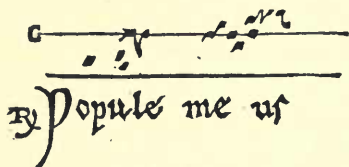 C
℟ Popule me us